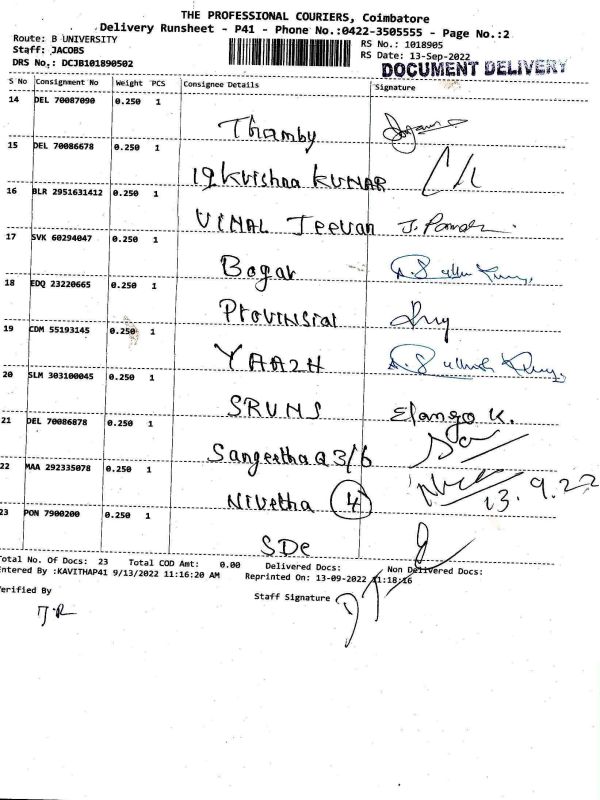 THE PROFESSIONAL COURIERS, Coimbatore
Delivery Runsheet - P41 - Phone No.:0422-3505555 - Page No.:2
Route: B UNIVERSITY
Staff: JACOBS
DRS No.: DCJB101890502
RS No.: 1018905
RS Date: 13-Sep-2022
DOCUMENT DELIVERY
S No Consignment No Weight PCS Consignee Details Signature
14 DEL 70087090 0.250 1
Thamby
15 DEL 70086678 0.250 1
19 Krishna KUMAR
16 BLR 2951631412 0.250 1
VIMAL Jeevan
17 SVK 60294047 0.250 1
Bogar
18 EDQ 23220665 0.250 1
Provinsial
19 CDM 55193145 0.250 1
YAAZH
20 SLM 303100045 0.250 1
SRUNS Elango K.
21 DEL 70086878 0.250 1
Sangeetha Q 3/6
22 MAA 292335078 0.250 1
Nivetha 4 13.9.22
23 PON 7900200 0.250 1
SDC
Total No. Of Docs: 23 Total COD Amt: 0.00 Delivered Docs: Non Delivered Docs:
Entered By :KAVITHAP41 9/13/2022 11:16:20 AM Reprinted On: 13-09-2022 11:18:16
Verified By Staff Signature